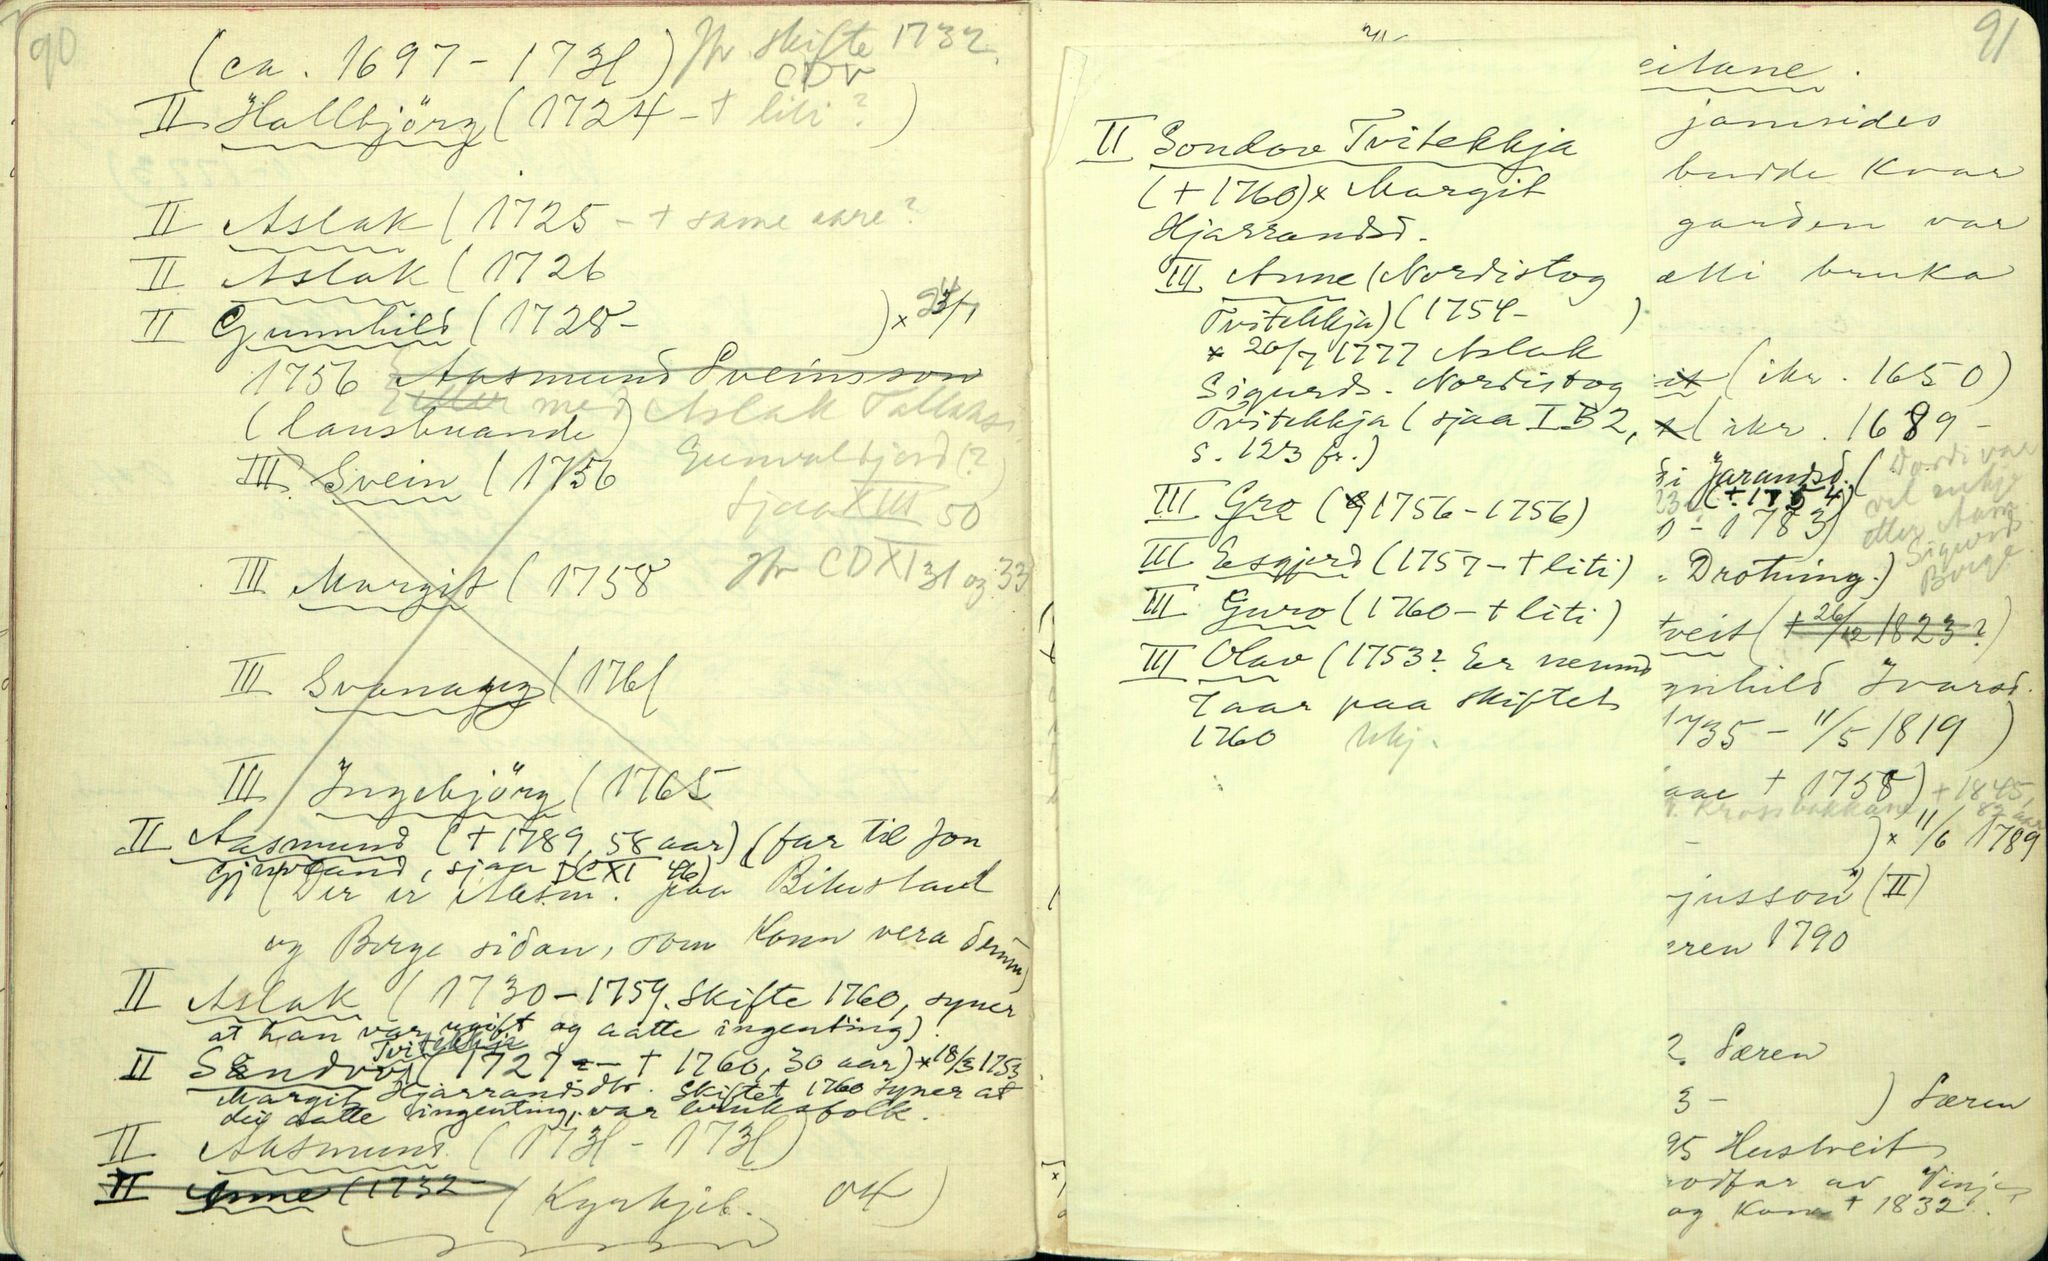 90
(ca. 1697 - 1731) Jfr skifte 1732
CDV
II Hallbjörg (1724 - + liti ? )
II Aslak (1725 - + same aare ?
II Aslak (1726
II Gunnhild (1728 - ) x
1756 Aasmund Sveinsson
med Aslak
(lausbuande)
III Svein (1756
sjaa XIII 50
III Margit (1758 Jfr CDXI 31 og 33
III Svanaug (1761
III Ingebjörg (1765
II Aasmund (+ 1789, 58 aar) (far til Jon
sjaa DCXI 46)
(Der er Aasm. paa Bikusland
og Berge sidan, som kann vera denne)
II Aslak (1730 - 1759. Skifte 1760, syner
at han var ugift og aatte ingenting).
Tvitekkja
II Sondov (1727 - + 1760, 30 aar) x 18/3 1753
Margit Hjarrandsdtr. Skiftet 1760 syner at
dei aatte ingenting, var bruksfolk.
II Aasmund (1731 - 1731)
II Anne (1732 - (Kyrkjeb. 04)
II Sondov Tvitekkja
(+ 1760) x Margit
Hjarrandsd.
III Anne (Nordistog
Tvitekkja) (1754 - )
x 20/7 1777 Aslak
Sigurds. Nordistog
Tvitekkja (sjaa I B 2,
s. 123 fr.)
III Gro (1756 - 1756)
III Esgjerd (1757 - + liti)
III Guro (1760 - + liti)
III Olav (1753? Er nemnd
7 aar paa skiftet
1760
91
eitane.
jamsides
budde kvar
garden var
atti bruka
(ikr. 1650)
(ikr. 1689 -
Jarandsd. (
(+ 1754)
- 1783)
Drotning.)
Sigurds.
Berge.
tveit (+ 26/12 1823 ?)
gnhild Ivarsd.
1735 - 11/5 1819 )
aae + 1758) + 1845,
Krossbakkane 82 aar
- ) x 11/6 1789
jusson (II)
eren 1790
2. Særen
3 - ) Særen
95 Hustveit
odfar av Vinje
og Kona + 1832.